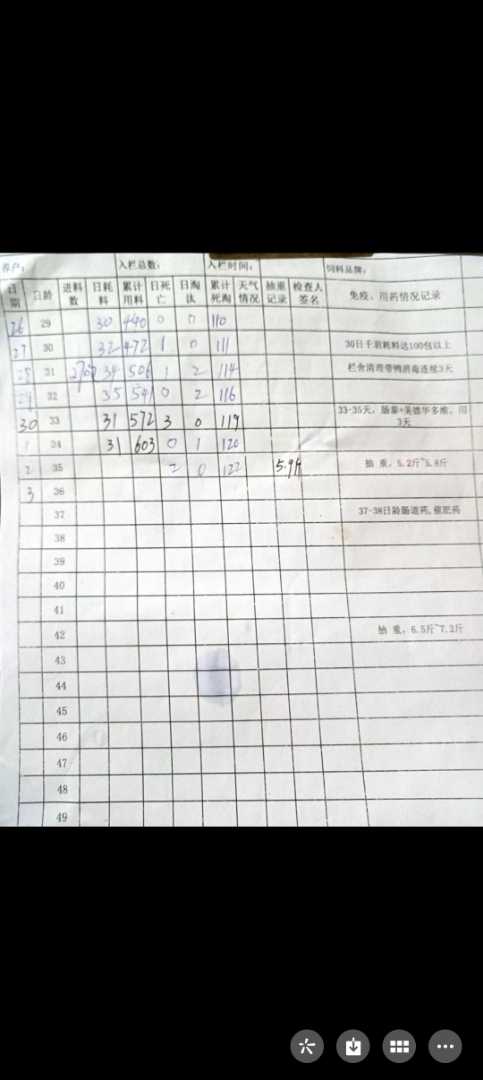 养户： 入栏总数： 入栏时间： 饲料品牌：
日期 日龄 进料数 日耗料 累计用料 日死亡 日淘汰 累计死淘 天气情况 抽重记录 检查人签名 免疫、用药情况记录
26 29 30 440 0 0 110
27 30 32 472 1 0 111 30日千羽耗料达100包以上
31 34 506 1 2 114 栏舍清理带鸭消毒连续3天
32 35 541 0 2 116
30 33 31 572 3 0 119 33-35天，肠泰+美德华多维，用3天
1 34 31 603 0 1 120
2 35 2 0 122 抽重，5.2斤~5.8斤
3 36
37 37-38日龄肠道药，催肥药
38
39
40
41
42 抽重，6.5斤~7.2斤
43
44
45
46
47
48
49